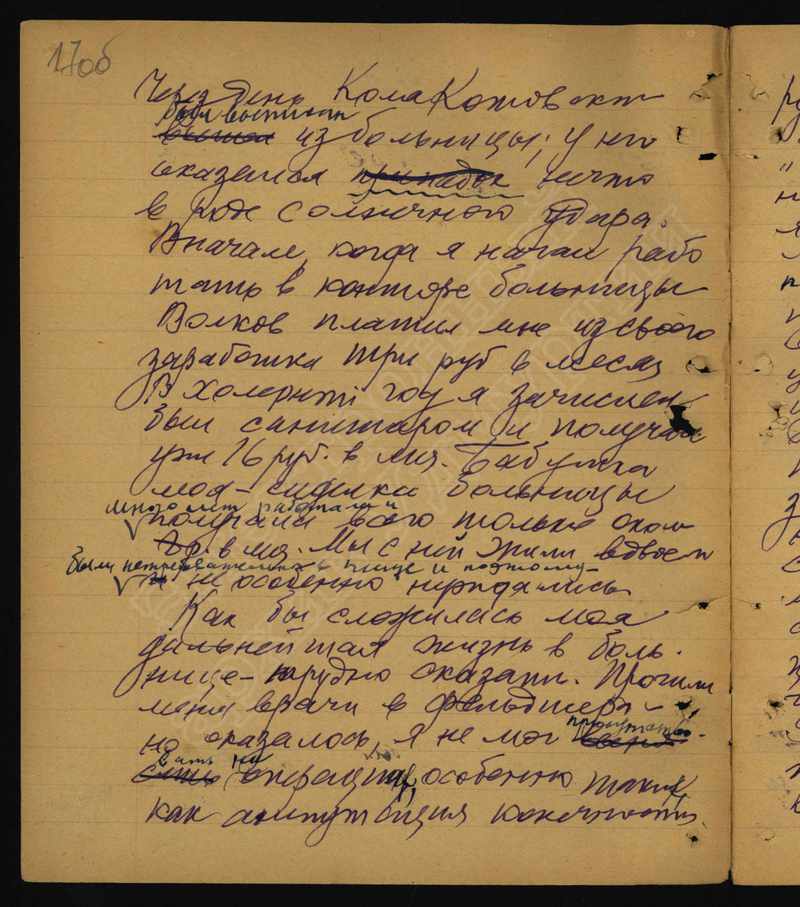 17об
Через день Кола Котов
был выписан
из больницы; у него
оказался припадок нечто
в роде солнечного удара.
Вначале, когда я начал рабо
тать в конторе больницы
Волков платил мне из своего
заработка три руб в месяц
В холерный год я зачислен
был санитаром и получал
уже 16 руб. в мес. Бабушка
моя – сиделка больницы
много лет работала и
получала всего только около
в мес. Мы с ней жили вдвоем
были нетребовательны в пище и поэтому
не особенно нуждались
Как бы сложилась моя
дальнейшая жизнь в боль-
нице – трудно сказать. Прочили
меня врачи в фельдшера –
но оказалось, я не мог присутство-
вать на операциях, особенно таких
как ампутация конечности.